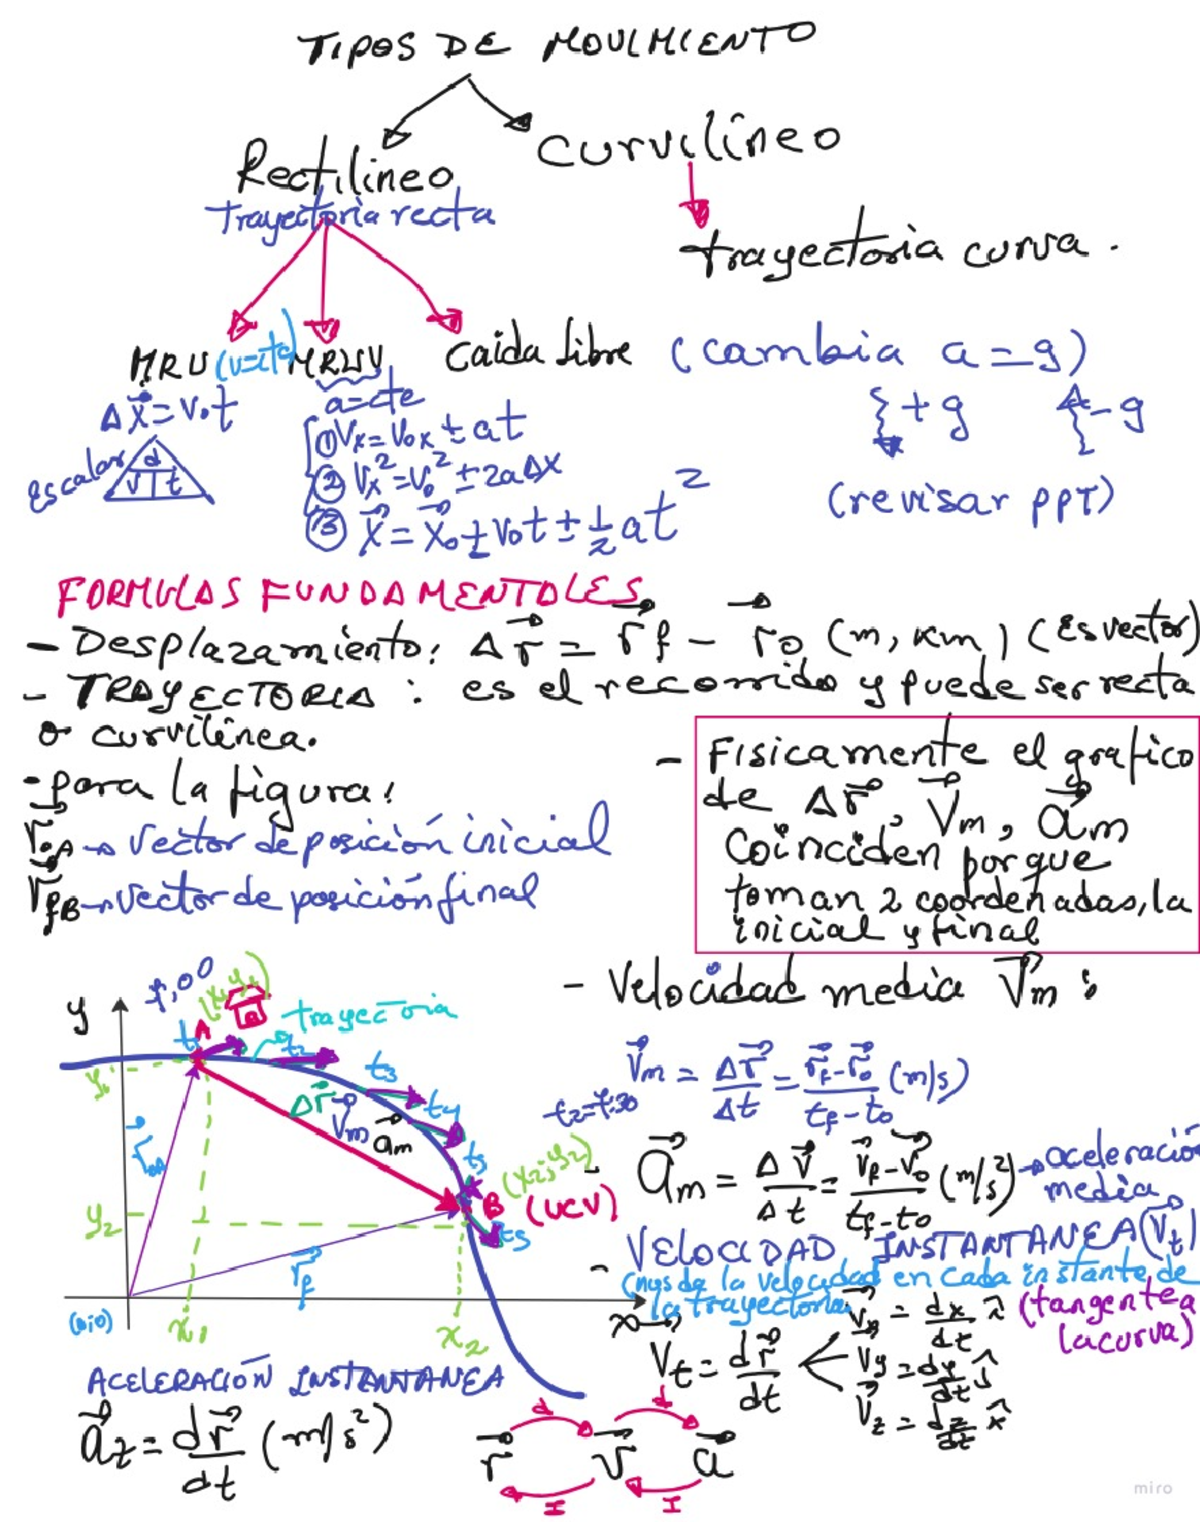 TIPOS DE MOVIMIENTO
Rectilíneo
Curvilíneo
trayectoria recta
trayectoria curva.
MRU (v=cte)
MRUV
Caida libre (cambia a=g)
Δx⃗ = v.t
a=cte
+g
-g
Escalar
d
v t
① Vx = Vox ± at
② Vx² = Vo² ± 2aΔx
③ x⃗ = x⃗o ± vot ± ½ at²
(revisar PPT)
FORMULAS FUNDAMENTALES
- Desplazamiento: Δr⃗ = r⃗f - r⃗o (m, km) (Es vector)
- TRAYECTORIA: es el recorrido y puede ser recta
o curvilínea.
- para la figura:
r⃗oA → vector de posición inicial
r⃗fB → vector de posición final
- Fisicamente el grafico
de Δr⃗, V⃗m, a⃗m
coinciden porque
toman 2 coordenadas, la
inicial y final
- Velocidad media V⃗m:
V⃗m = Δr⃗/Δt = (r⃗f - r⃗o)/(tf - to) (m/s)
- a⃗m = Δv⃗/Δt = (v⃗f - v⃗o)/(tf - to) (m/s²) → aceleración
media
- VELOCIDAD INSTANTANEA (V⃗t)
(nos da la velocidad en cada instante de
la trayectoria (tangente a
la curva)
Vt = dr⃗/dt
V⃗x = dx/dt
V⃗y = dy/dt ĵ
V⃗z = dz/dt
y
A
trayectoria
t2
t3
t4
t5
Δr⃗
V⃗m
a⃗m
r⃗oA
y2
B (UCV)
(x2; y2)
t5
r⃗f
(0;0)
x1
x2
x
ACELERACIÓN INSTANTANEA
a⃗t = dr⃗/dt (m/s²)
d d
r⃗ v⃗ a⃗
I I
miro